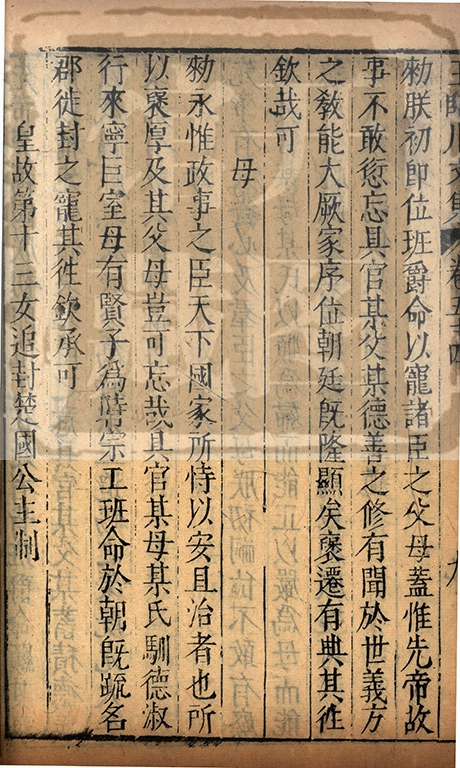 王臨川文集 卷五十四 九
勑朕初即位班爵命以寵諸臣之父母蓋惟先帝故
事不敢愆忘具官某父某德善之修有聞於世義方
之敎能大厥家序位朝廷旣隆顯矣褒遷有典其徃
欽哉可
母
勑永惟政事之臣天下國家所恃以安且治者也所
以褒厚及其父母豈可忘哉具官某母某氏馴德淑
行來寧巨室母有賢子爲時宗工班命於朝旣疏名
郡徙封之寵其徃欽承可
皇故第十三女追封楚國公主制